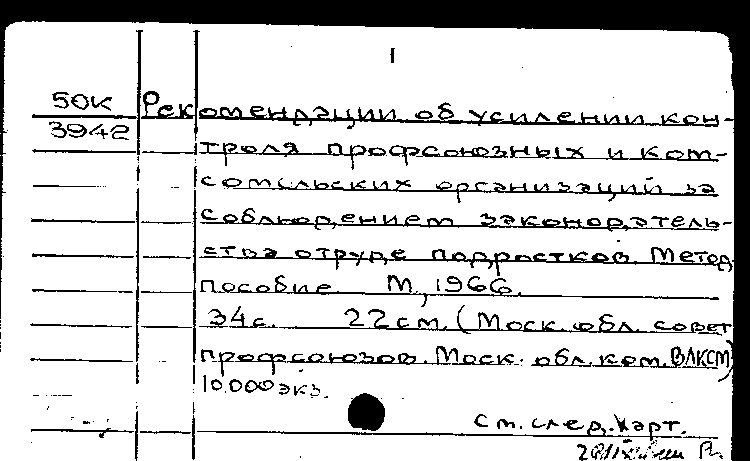 I
50К Рекомендации об усилении кон-
3942 троля профсоюзных и ком-
сомольских организаций за
соблюдением законодатель-
ства о труде подростков. Метод.
пособие. М., 1966.
34с. 22см. (Моск. обл. совет
профсоюзов. Моск. обл. ком. ВЛКСМ)
10.000 экз.
См. след. карт.